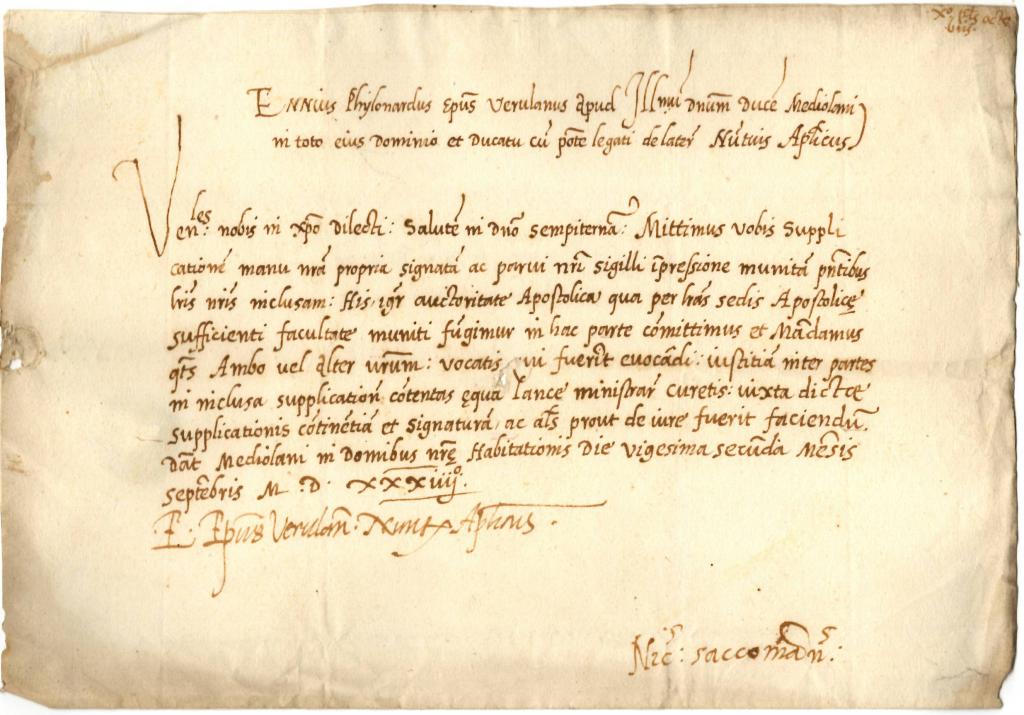 Ennius Phylonardus Epũs Verulanus Apud Illmũ dnũm Ducẽ Mediolani
in toto eius Dominio et Ducatu cũ põte legati de later̃ Nũtius Ap̃licus
Venles: nobis in xp̃o Dilecti: Salutẽ in Dn̄o sempiternã: Mittimus vobis Suppli
cationẽ manu nrã propria signatã ac parvi nrĩ sigilli ĩpressione munitã pñtibus
lrĩs nrĩs inclusam: His igr̃ auctoritate Apostolica qua per lrãs sedis Apostolicę
sufficienti facultate muniti fũgimur in hac parte cõmittimus et Mãdamus
qts̃ Ambo vel Alter vrũm: vocatis qui fuerĩt evocãdi: iustitiã inter partes
in inclusa supplication̄ cõtentas ęqua lance ministrar̃ curetis: iuxta dictę
supplicationis cõtinẽtiã et signaturã, ac als̃ prout de iure fuerit faciendũ.
Dat̃ Mediolani in Domibus nrẽ Habitationis Die vigesima secũda Mẽsis
septẽbris M .D. xxxiiijo.
E. Epũs Verulan̄. Nunt Ap̃licus.
Nics: saccomãdns: